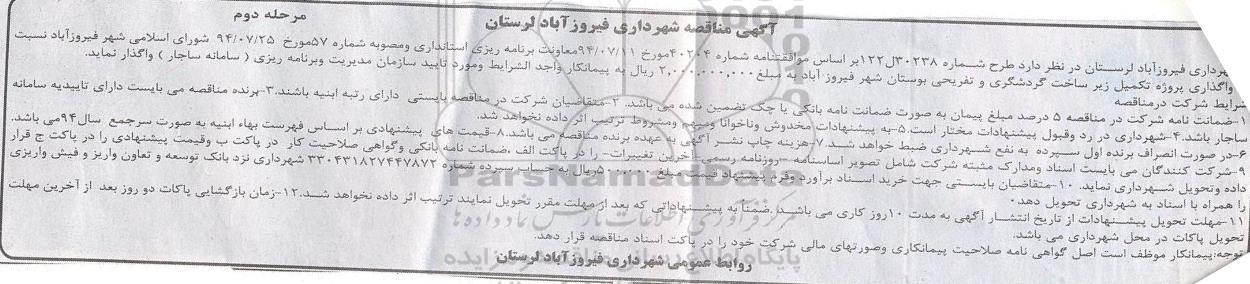 آگهی مناقصه شهرداری فیروزآباد لرستان
مرحله دوم
هرداری فیروزآباد لرستان در نظر دارد طرح شماره ۳۰۲۳۸ل۱۲۲بر اساس موافقتنامه شماره ۴۰۲۰۴مورخ ۹۴/۰۷/۱۱معاونت برنامه ریزی استانداری ومصوبه شماره ۵۷مورخ ۹۴/۰۷/۲۵ شورای اسلامی شهر فیروزآباد نسبت
واگذاری پروژه تکمیل زیر ساخت گردشگری و تفریحی بوستان شهر فیروز آباد به مبلغ۲,۰۰۰,۰۰۰,۰۰۰ ریال به پیمانکار واجد الشرایط ومورد تایید سازمان مدیریت وبرنامه ریزی ( سامانه ساجار ) واگذار نماید.
شرایط شرکت درمناقصه
۱-ضمانت نامه شرکت در مناقصه ۵ درصد مبلغ پیمان به صورت ضمانت نامه بانکی یا چک تضمین شده می باشد. ۲-متقاضیان شرکت در مناقصه بایستی دارای رتبه ابنیه باشند.۳-برنده مناقصه می بایست دارای تاییدیه سامانه
ساجار باشد.۴-شهرداری در رد وقبول پیشنهادات مختار است.۵-به پیشنهادات مخدوش وناخوانا ومبهم ومشروط ترتیب اثر داده نخواهد شد.
۶-در صورت انصراف برنده اول سپرده به نفع شهرداری ضبط خواهد شد.۷-هزینه چاپ نشر آگهی به عهده برنده مناقصه می باشد.۸-قیمت های پیشنهادی بر اساس فهرست بهاء ابنیه به صورت سرجمع سال۹۴می باشد.
۹-شرکت کنندگان می بایست اسناد ومدارک مشبته شرکت شامل تصویر اساسنامه -روزنامه رسمی-آخرین تغییرات- را در پاکت الف ،ضمانت نامه بانکی وگواهی صلاحیت کار در پاکت ب وقیمت پیشنهادی را در پاکت ج قرار
داده وتحویل شهرداری نماید. ۱۰-متقاضیان بایستی جهت خرید اسناد برآورد وفرم پیشنهاد قیمت مبلغ ۵۰۰,۰۰۰ریال به حساب سپرده شماره ۳۳۰۴۳۱۸۲۷۴۴۷۸۷۲ شهرداری نزد بانک توسعه و تعاون واریز و فیش واریزی
را همراه با اسناد به شهرداری تحویل دهد.
۱۱-مهلت تحویل پیشنهادات از تاریخ انتشار آگهی به مدت ۱۰روز کاری می باشد.ضمنا به پیشنهاداتی که بعد از مهلت مقرر تحویل نمایند ترتیب اثر داده نخواهد شد.۱۲-زمان بازگشایی پاکات دو روز بعد از آخرین مهلت
تحویل پاکات در محل شهرداری می باشد.
توجه:پیمانکار موظف است اصل گواهی نامه صلاحیت پیمانکاری وصورتهای مالی شرکت خود را در پاکت اسناد مناقصه قرار دهد.
روابط عمومی شهرداری فیروزآباد لرستان
ParsNamadData